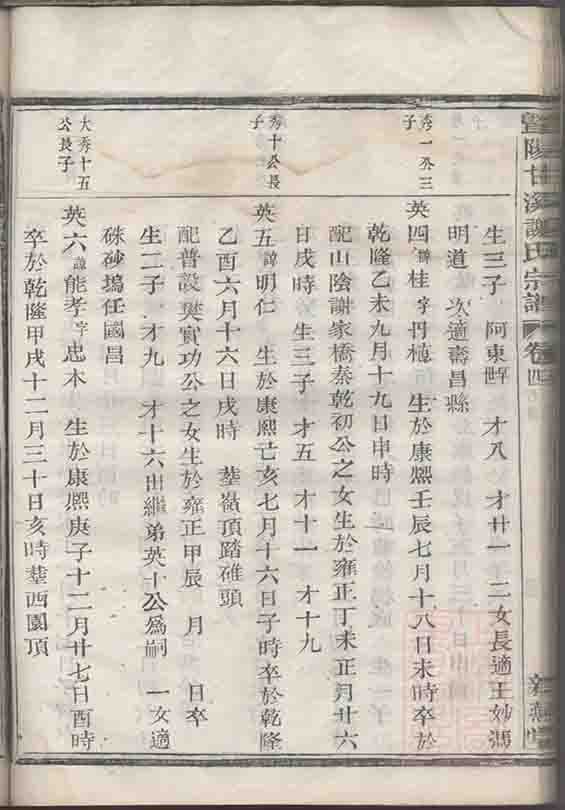 暨陽甘溪謝氏宗譜 卷四
生三子 阿東 才八 才廿一 二女長適王妙馮
明道 次適壽昌縣
秀一公三子
英四諱桂字丹植 生於康熙壬辰七月十八日未時卒於
乾隆乙未九月十九日申時
配山陰謝家橋秦乾初公之女生於雍正丁未正月廿六
日戌時 生三子 才五 才十一 才十九
秀十公長子
英五諱明仁 生於康熙亥七月十六日子時卒於乾隆
乙酉六月十六日戌時 塟嶺頂踏碓頭
配普設樊實功公之女生於雍正甲辰 月 日卒
生二子 才九 才十六出繼弟英十公為嗣 一女適
硃砂塢任國昌
大秀十五公長子
英六諱能孝字忠木 生於康熙庚子十二月廿七日酉時
卒於乾隆甲戌十二月三十日亥時塟西園頂